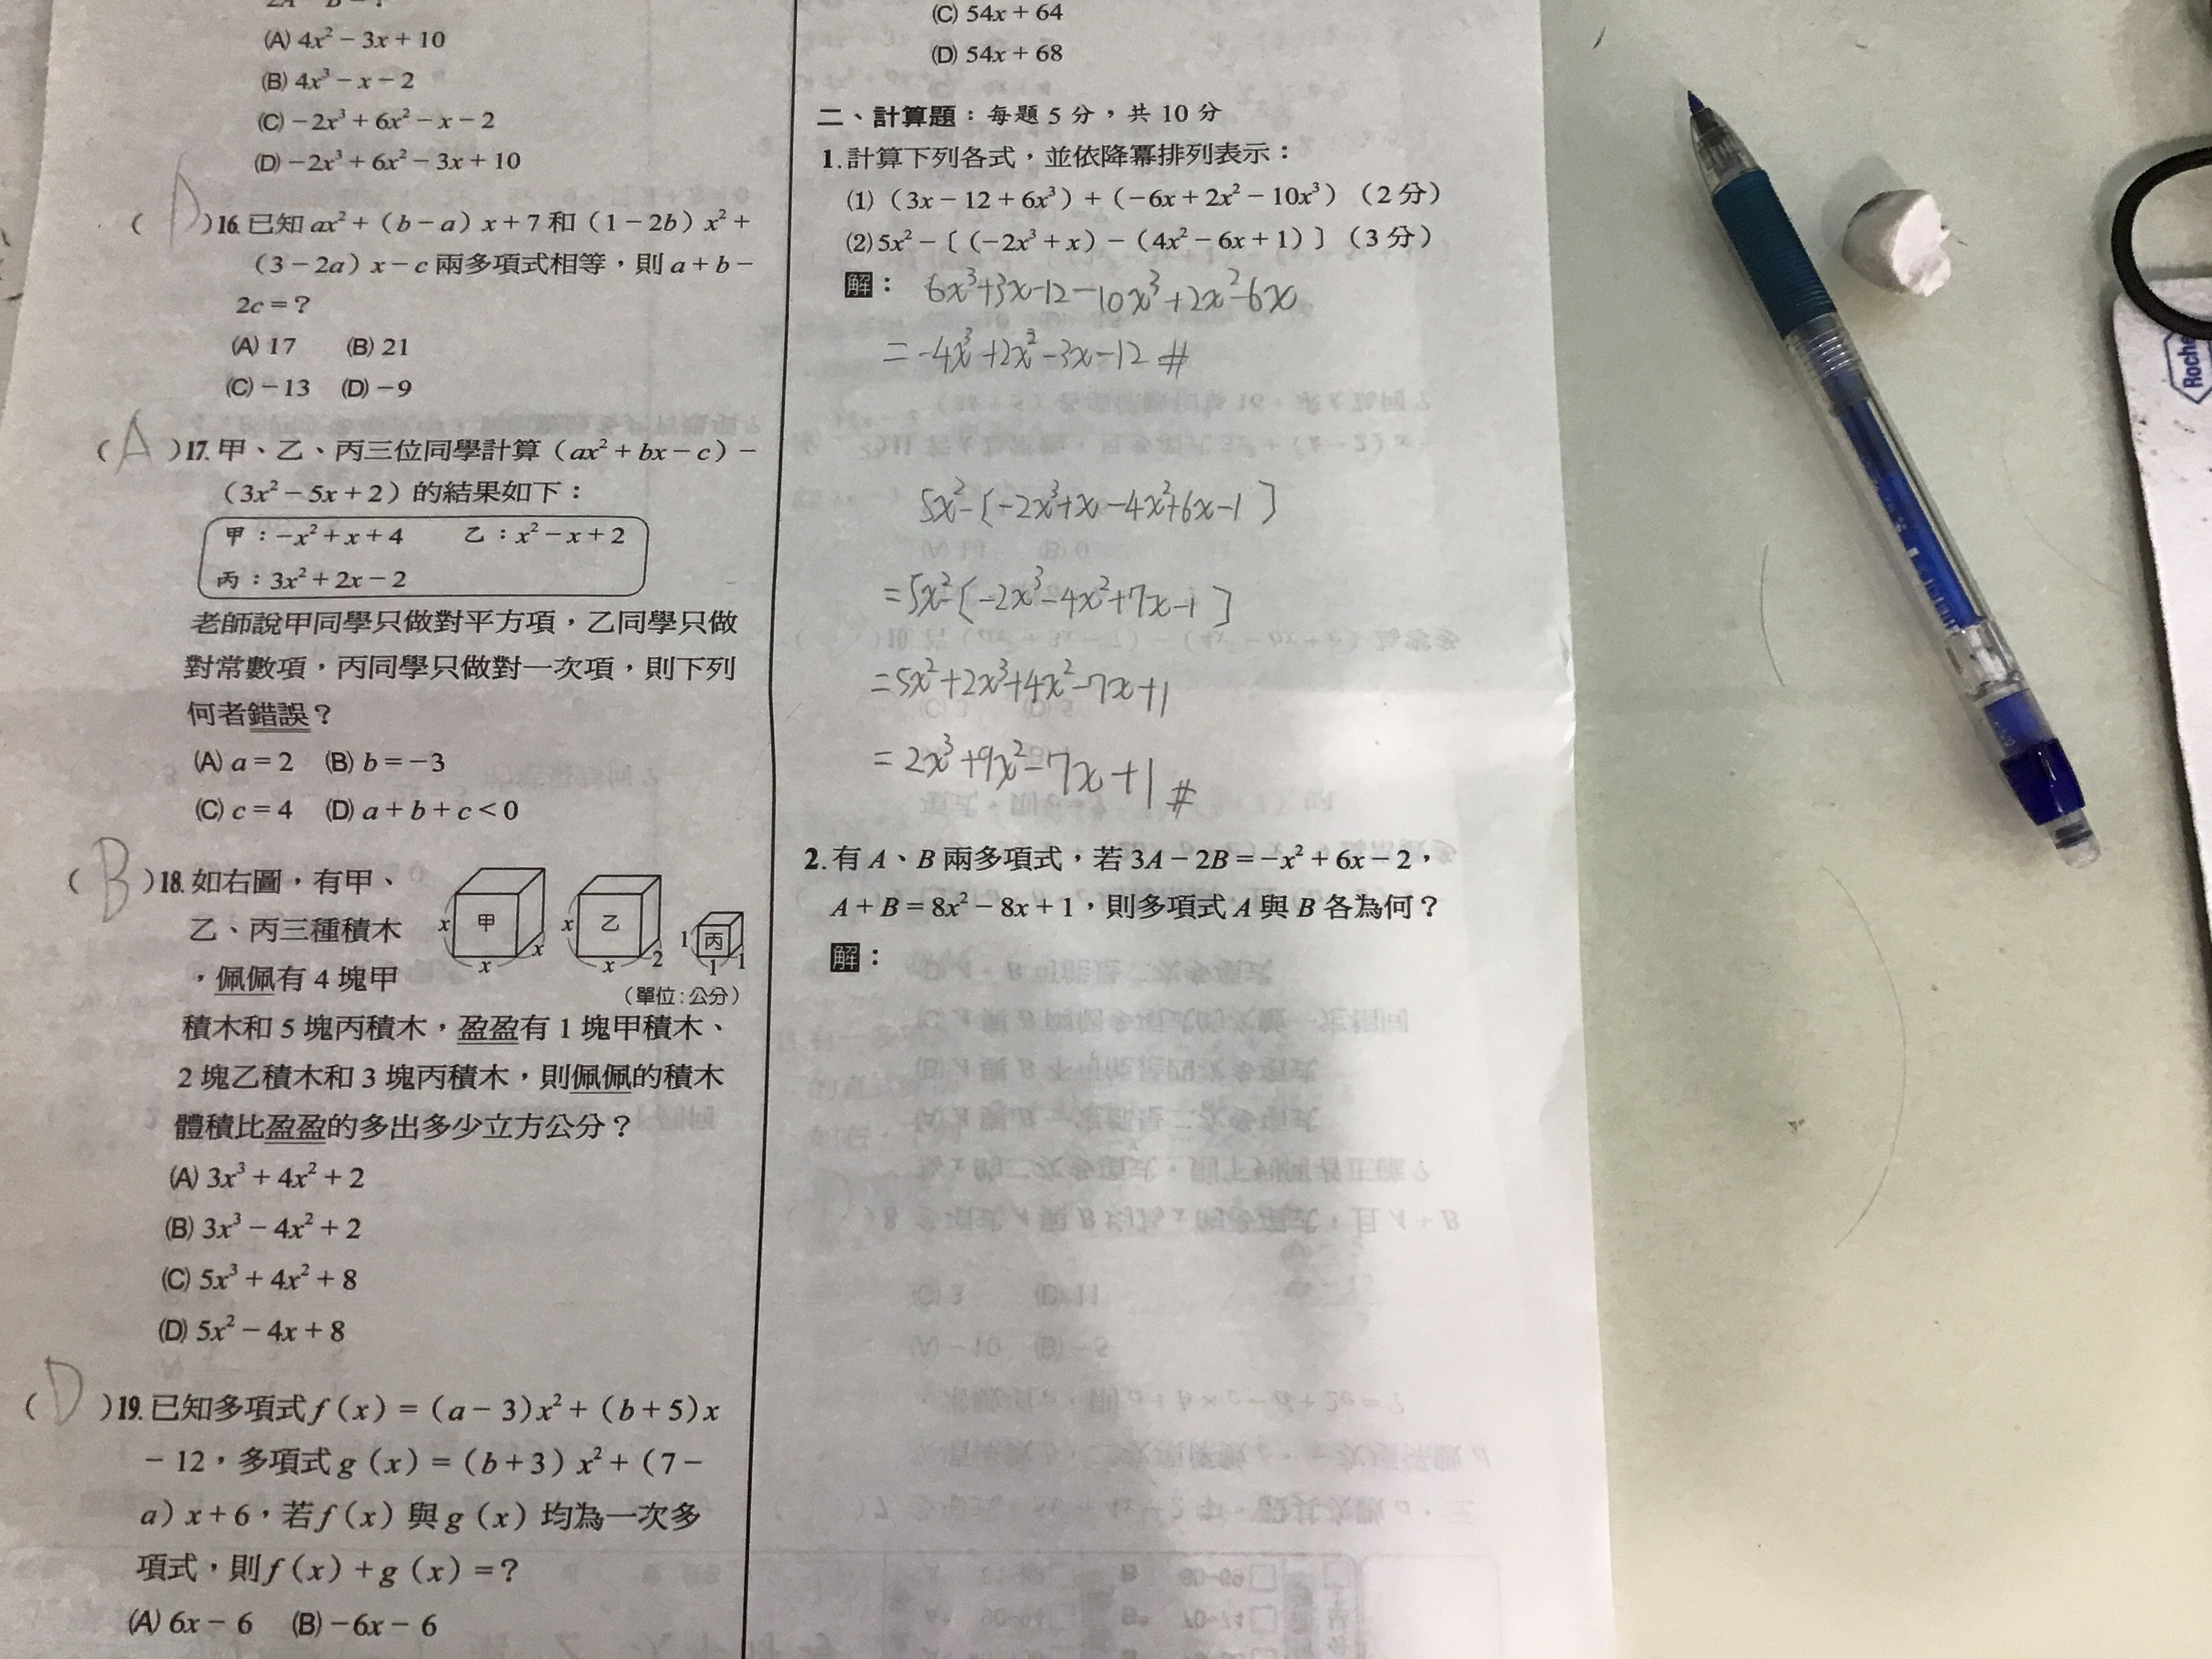 (A) 4x² − 3x + 10
(B) 4x³ − x − 2
(C) −2x³ + 6x² − x − 2
(D) −2x³ + 6x² − 3x + 10
( D )16. 已知 ax² +（b − a）x + 7 和（1 − 2b）x² +
（3 − 2a）x − c 兩多項式相等，則 a + b −
2c = ?
(A) 17 (B) 21
(C) −13 (D) −9
( A )17. 甲、乙、丙三位同學計算（ax² + bx − c）−
（3x² − 5x + 2）的結果如下：
甲：−x² + x + 4 乙：x² − x + 2
丙：3x² + 2x − 2
老師說甲同學只做對平方項，乙同學只做
對常數項，丙同學只做對一次項，則下列
何者錯誤？
(A) a = 2 (B) b = −3
(C) c = 4 (D) a + b + c < 0
( B )18. 如右圖，有甲、
乙、丙三種積木
，佩佩有 4 塊甲
x 甲 x x
x 乙 x 2
1 丙 1 1
（單位：公分）
積木和 5 塊丙積木，盈盈有 1 塊甲積木、
2 塊乙積木和 3 塊丙積木，則佩佩的積木
體積比盈盈的多出多少立方公分？
(A) 3x³ + 4x² + 2
(B) 3x³ − 4x² + 2
(C) 5x³ + 4x² + 8
(D) 5x² − 4x + 8
( D )19. 已知多項式 f（x）=（a − 3）x² +（b + 5）x
− 12，多項式 g（x）=（b + 3）x² +（7 −
a）x + 6，若 f（x）與 g（x）均為一次多
項式，則 f（x）+ g（x）= ?
(A) 6x − 6 (B) −6x − 6
(C) 54x + 64
(D) 54x + 68
二、計算題：每題 5 分，共 10 分
1. 計算下列各式，並依降冪排列表示：
(1)（3x − 12 + 6x³）+（−6x + 2x² − 10x³）（2 分）
(2) 5x² −〔（−2x³ + x）−（4x² − 6x + 1）〕（3 分）
解： 6x³+3x-12-10x³+2x²-6x
= -4x³+2x²-3x-12 #
5x²-[-2x³+x-4x²+6x-1]
= 5x²-[-2x³-4x²+7x-1]
= 5x²+2x³+4x²-7x+1
= 2x³+9x²-7x+1 #
2. 有 A、B 兩多項式，若 3A − 2B = −x² + 6x − 2，
A + B = 8x² − 8x + 1，則多項式 A 與 B 各為何？
解：
Roche